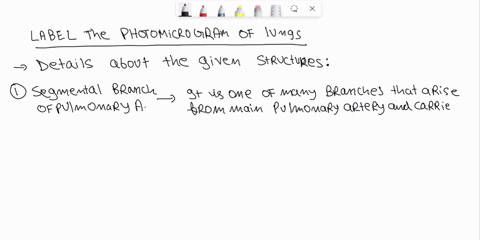 LABEL The PHOTOMICROGRAM OF lUNgS
→ Details about the given structures:
① Segmental Branch → It is one of many Branches that arise
OF pulmonary A. from main pulmonary artery and carrie